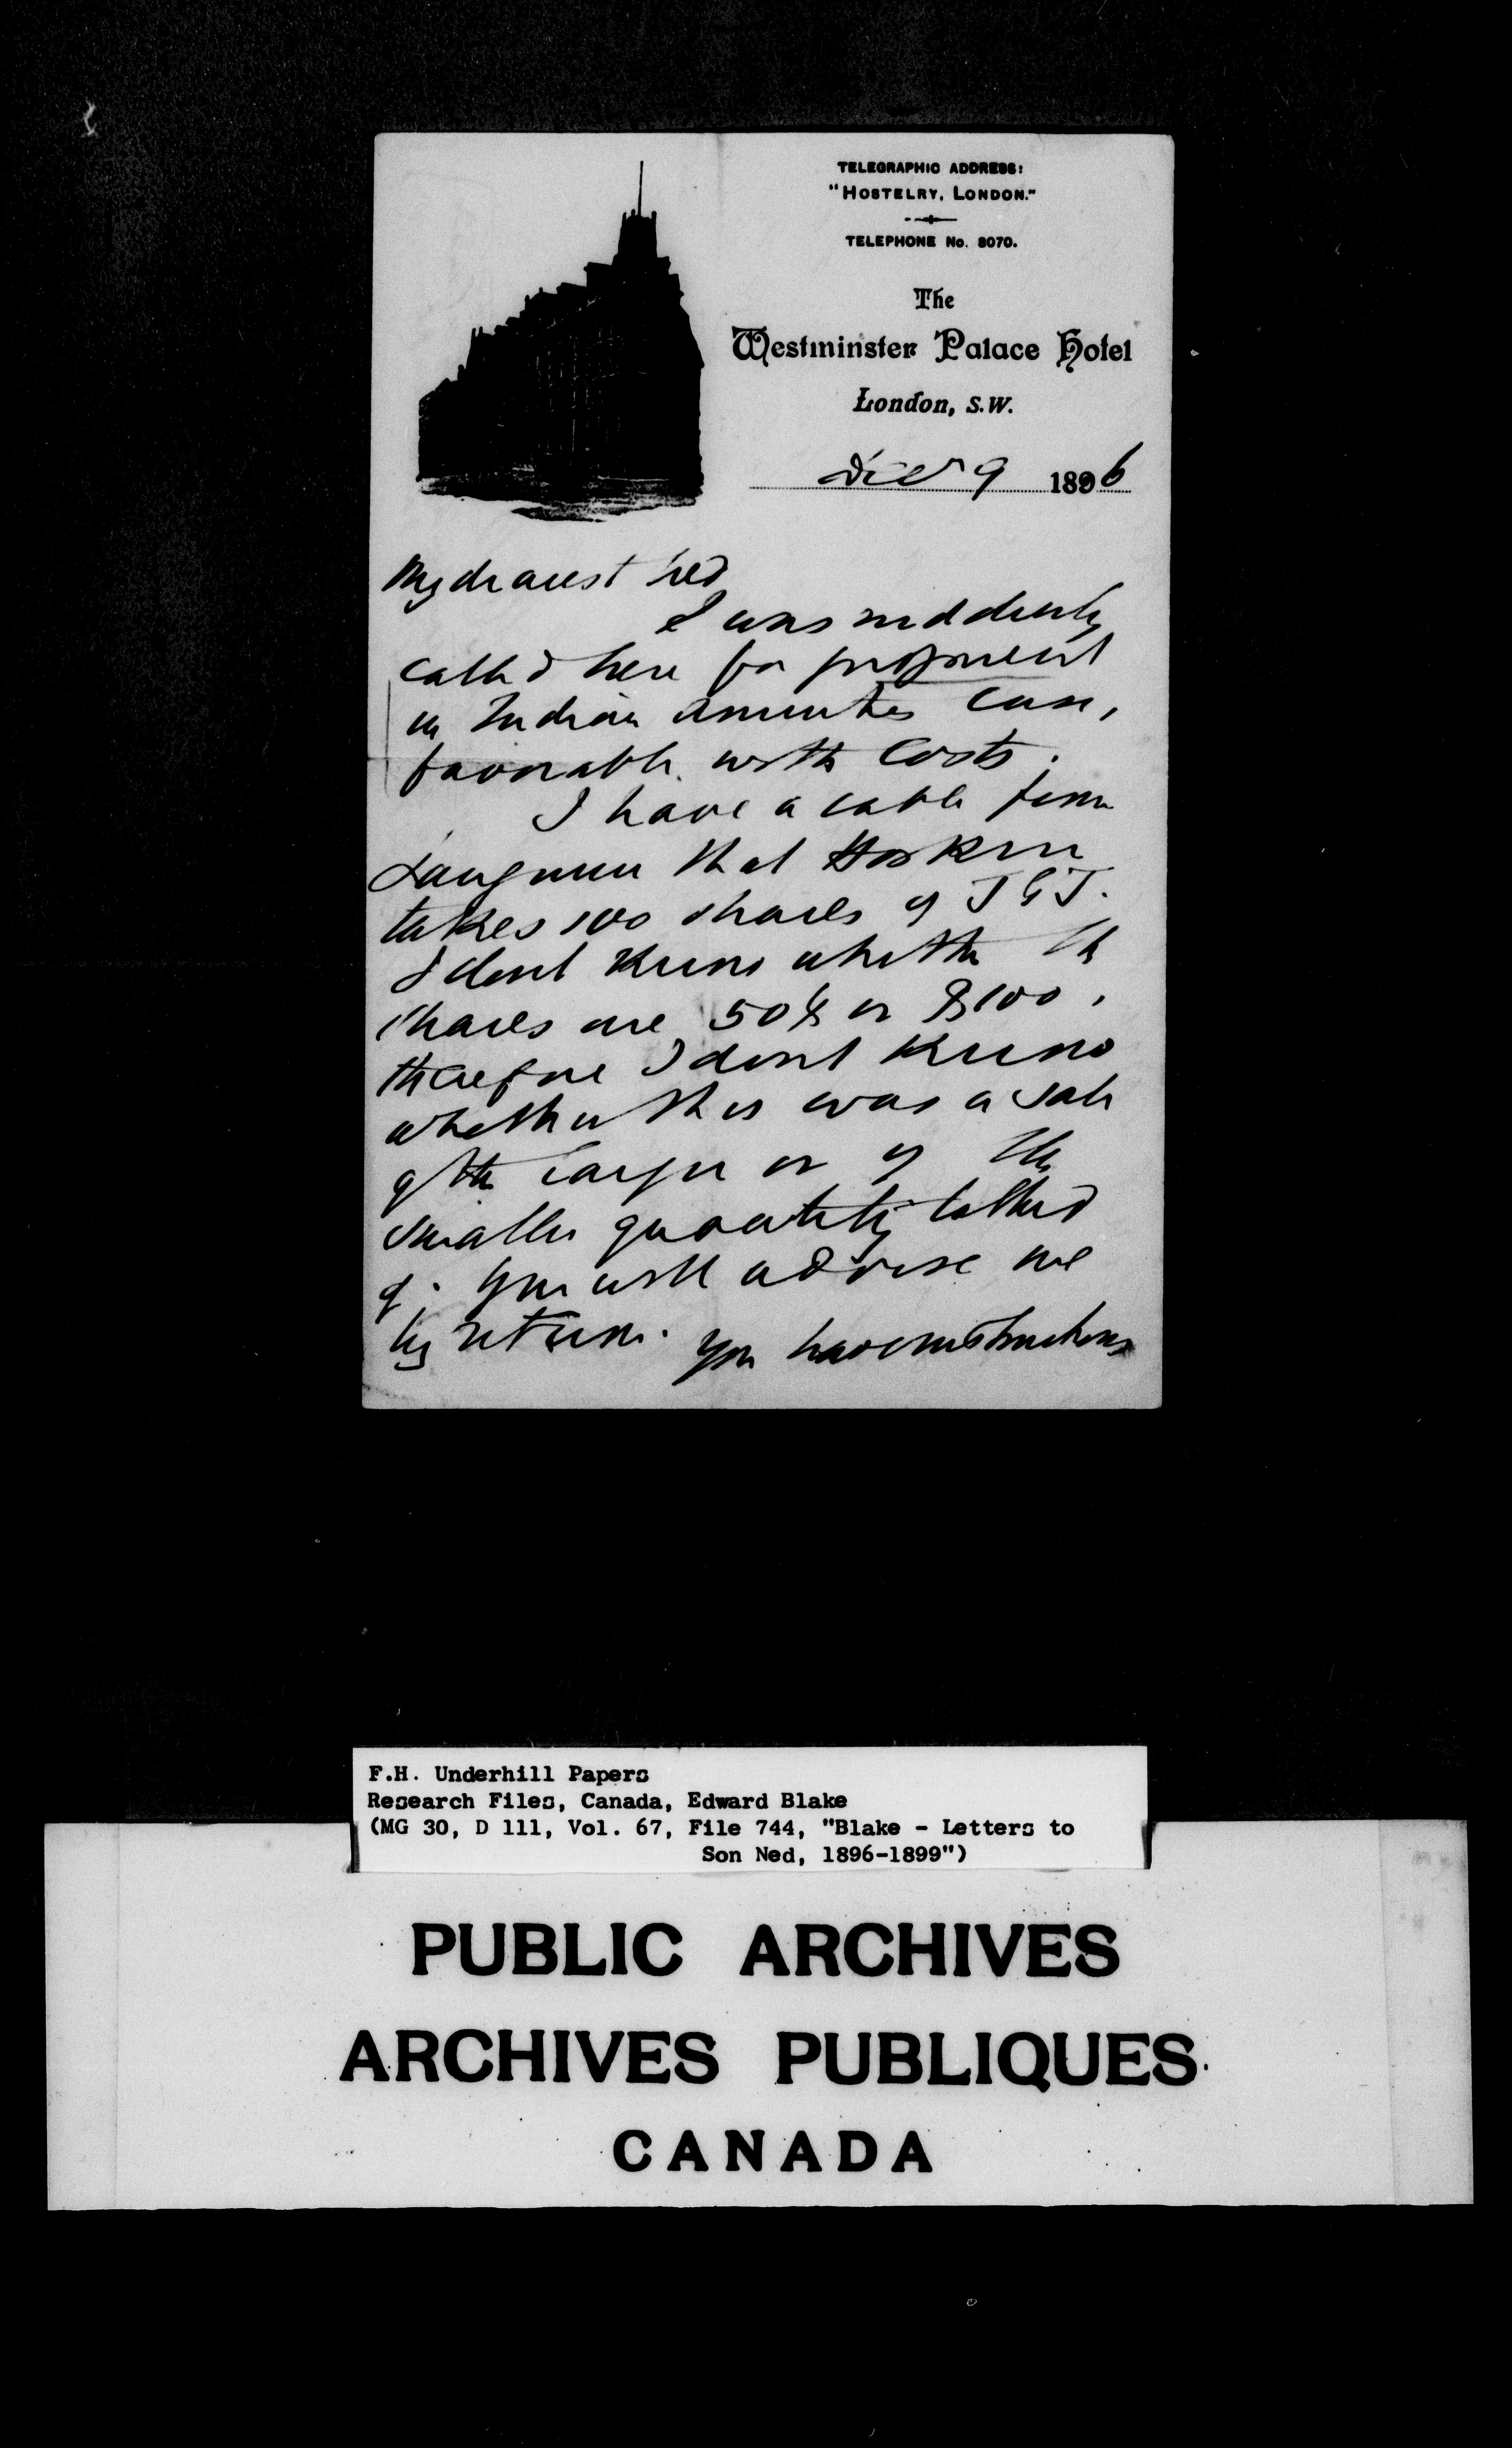 TELEGRAPHIC ADDRESS:
"HOSTELRY, LONDON."
TELEPHONE No. 8070.
The
Westminster Palace Hotel
London, S.W.
Dec 9 1896
My dearest Ned
I was suddenly
called here for judgment
in Indian annuities case,
favorable with costs.
I have a cable from
Langmuir that Hoskin
takes 100 shares of T G T.
I dont know whether the
shares are 50$ or $100,
therefore I dont know
whether this was a sale
of the larger or of the
smaller quantity talked
of. You will advise me
by return. You have instructions
F.H. Underhill Papers
Research Files, Canada, Edward Blake
(MG 30, D 111, Vol. 67, File 744, "Blake - Letters to
Son Ned, 1896-1899")
PUBLIC ARCHIVES
ARCHIVES PUBLIQUES
CANADA